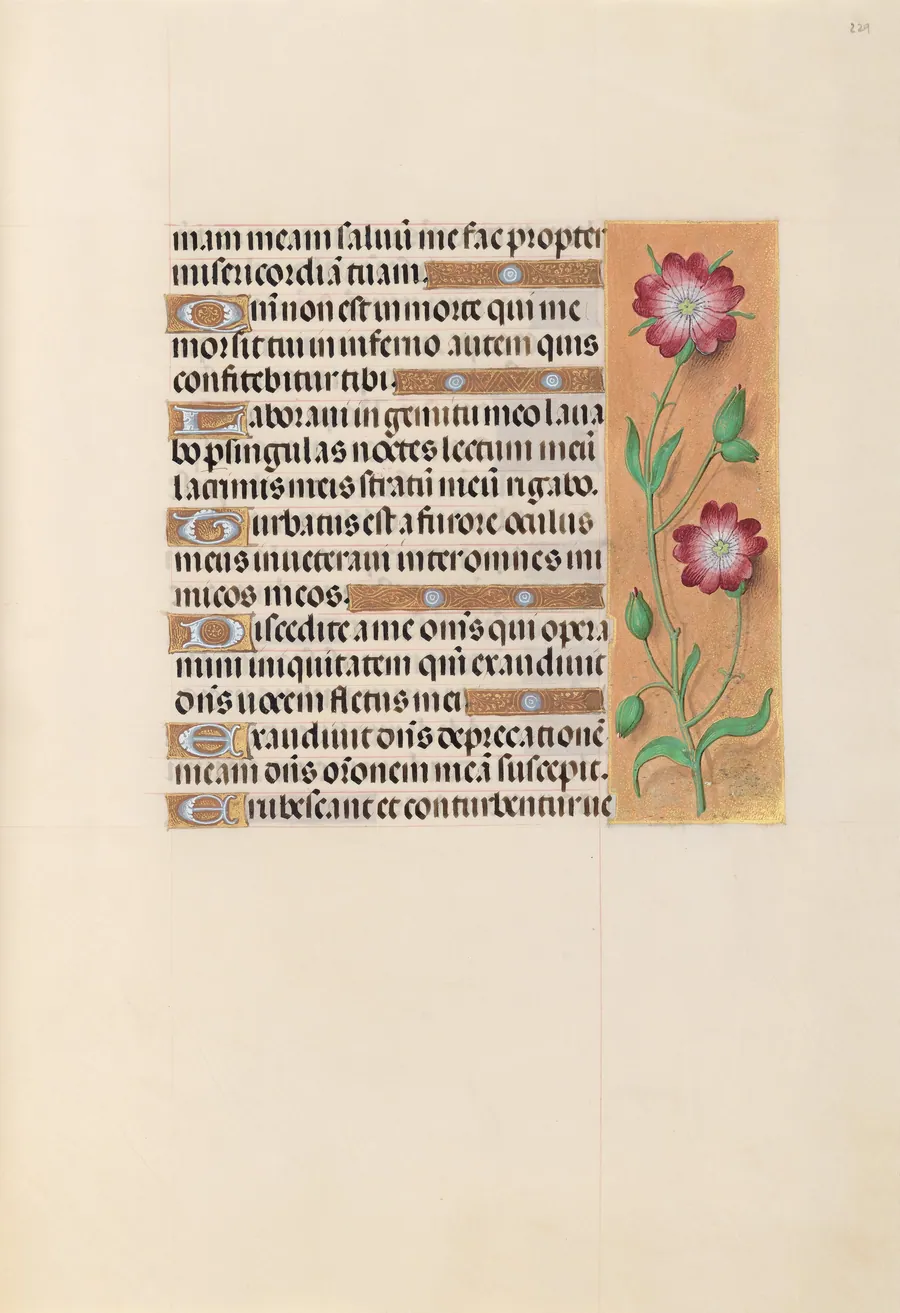 229
mam meam saluū me fac propter
misericordiā tuam.
Qm̄ non est in morte qui me
mor sit tui in inferno autem quis
confitebitur tibi.
Laboraui in gemitu meo laua
bo p singulas noctes lectum meū
lacrimis meis stratū meū rigabo.
Turbatus est a furore oculus
meus inueteraui inter omnes ini
micos meos.
Discedite a me om̄s qui opera
mini iniquitatem qm̄ exaudiuit
dn̄s uocem fletus mei
Exaudiuit dn̄s deprecationē
meam dn̄s or̄onem meā suscepit.
Erubescant et conturbentur ue